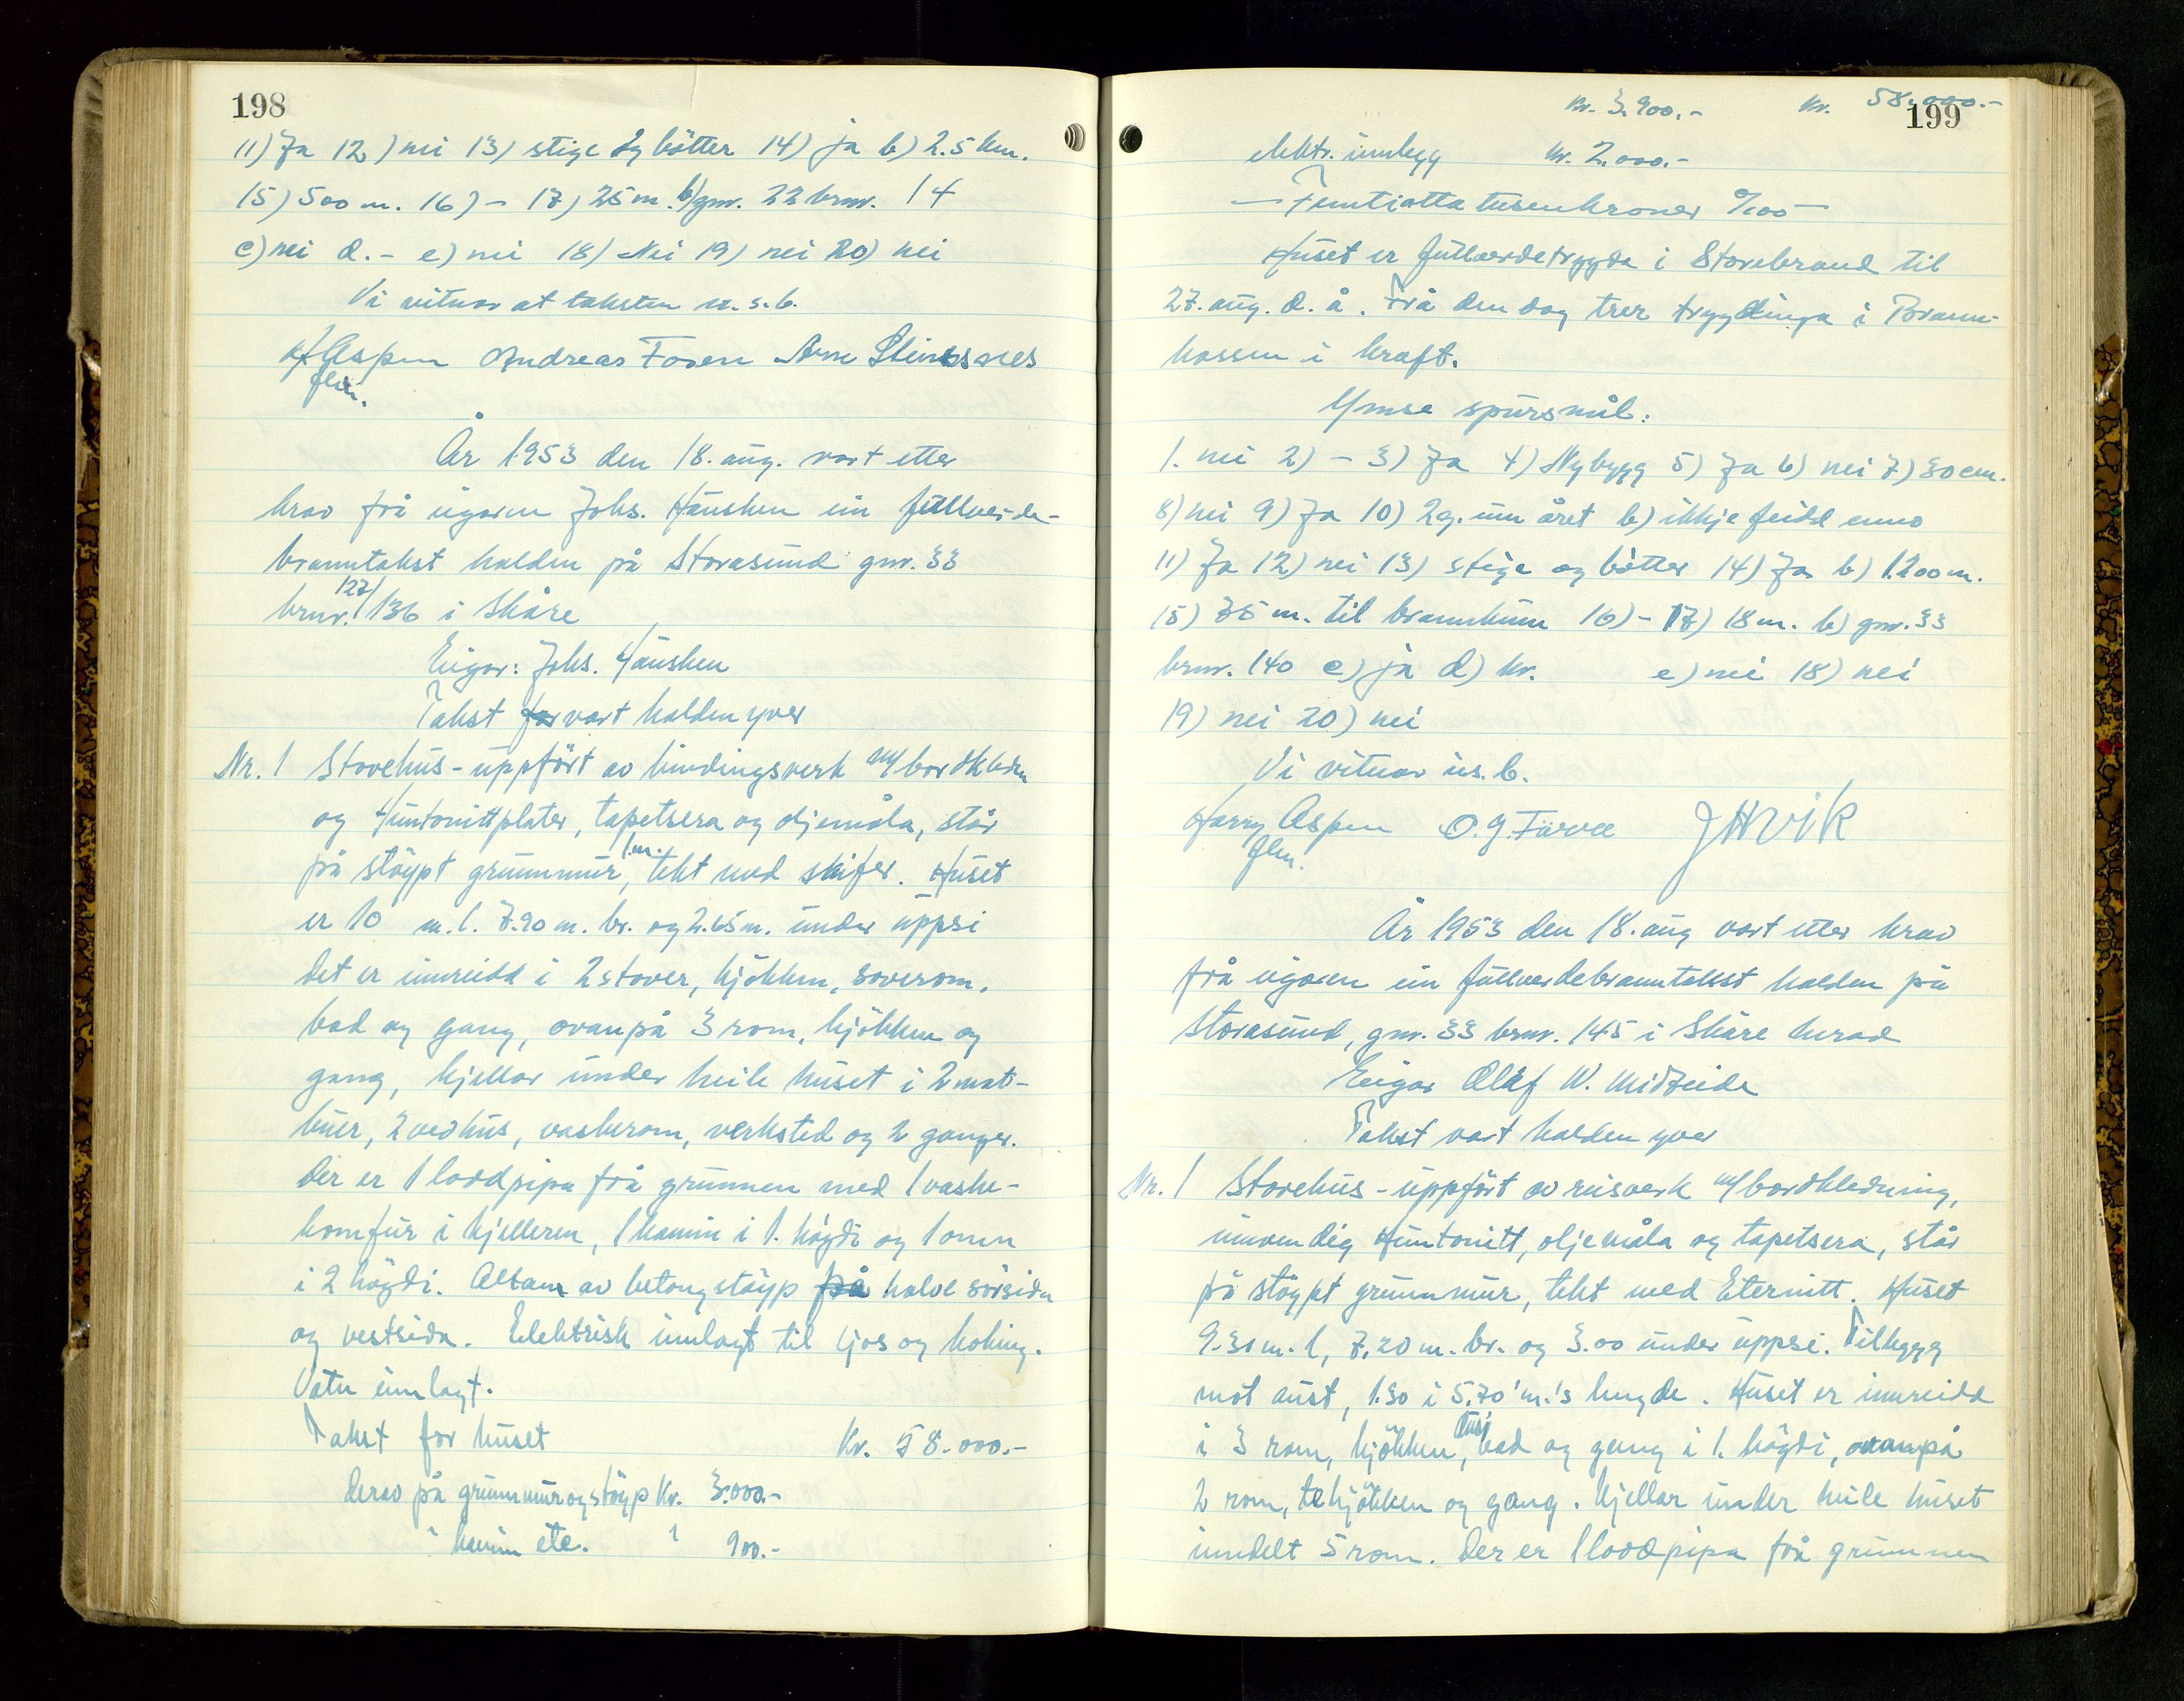 198
11) Ja 12) nei 13) stige og bøtter 14) ja b) 2.5 km.
15) 500 m. 16) - 17) 25 m. b) gnr. 22 brnr. 14
c) nei d. - e) nei 18) Nei 19) nei 20) nei
Vi vitnar at taksten u. s. b.
H Aspen Andreas Fosen Arne Steinsnes
flm.
År 1953 den 18. aug. vart etter
krav frå eigaren Johs. Hausken ein fullverde-
branntakst halden på Storasund gnr. 33
brnr. 127/136 i Skåre
Eigar: Johs. Hausken
Takst for vart halden yver
Nr. 1 Stovehus - uppfört av bindingsverk m/bordkledn
og Huntonittplater, tapetsera og oljemåla, står
på støypt grunnmur, 1.m. tekt med skifer. Huset
er 10 m. l. 7.90 m. br. og 2.65 m. under uppsi
Det er innreidd i 2 stover, kjökken, soverom,
bad og gang, ovanpå 3 rom, kjökken og
gang, kjellar under heile huset i 2 mat-
buer, 2 vedhus, vaskerom, verksted og 2 ganger.
Der er 1 loddpipa frå grunnen med 1 vaske-
komfur i kjelleren, 1 kamin i 1. høgdi og 1 omn
i 2 høgdi. Altan av betongstøyp på halve sörsida
og vestsida. Elektrisk innlagt til ljos og koking.
Vatn innlagt.
Takst for huset Kr. 58.000.-
Derav på grunnmur og støyp Kr. 3.000.-
" kamin etc. " 900.-
199
Kr. 3.900.- Kr. 58.000.-
elektr. innlegg Kr. 2.000.-
- Femtiåtta tusenkroner 0/100 -
Huset er fullverdetrygda i Storebrand til
27. aug. d. å. Frå den dag trer trygdinga i Brann-
kassen i kraft.
Ymse spursmål:
1. nei 2) - 3) Ja 4) Nybygg 5) Ja 6) nei 7) 30 cm.
8) nei 9) Ja 10) 2 g. um året b) ikkje feidd enno
11) Ja 12) nei 13) stige og bøtter 14) Ja b) 1.200 m.
15) 75 m. til brannkum 16) - 17) 18 m. b) gnr. 33
brnr. 140 c) ja d) kr. e) nei 18) nei
19) nei 20) nei
Vi vitnar u. s. b.
Harry Aspen O. G. Förvee J H Vik
flm.
År 1953 den 18. aug vart etter krav
frå eigaren ein fullverdebranntakst halden på
Storasund, gnr. 33 brnr. 145 i Skåre herad
Eigar Olaf W. Midteide
Takst vart halden yver
Nr. 1 Stovehus - uppfört av reisverk m/bordkledning,
innvendig Huntonitt, oljemåla og tapetsera, står
på støypt grunnmur, tekt med Eternitt. Huset
9.30 m. l, 7.20 m. br. og 3.00 under uppsi. Tilbygg
mot aust, 1.30 i 5.70 'm.'s lengde. Huset er innreidd
i 3 rom, kjökken, bad og gang i 1. høgdi, ovanpå
2 rom, tekjökken og gang. Kjellar under heile huset
inndelt 5 rom. Der er 1 loddpipa frå grunnen